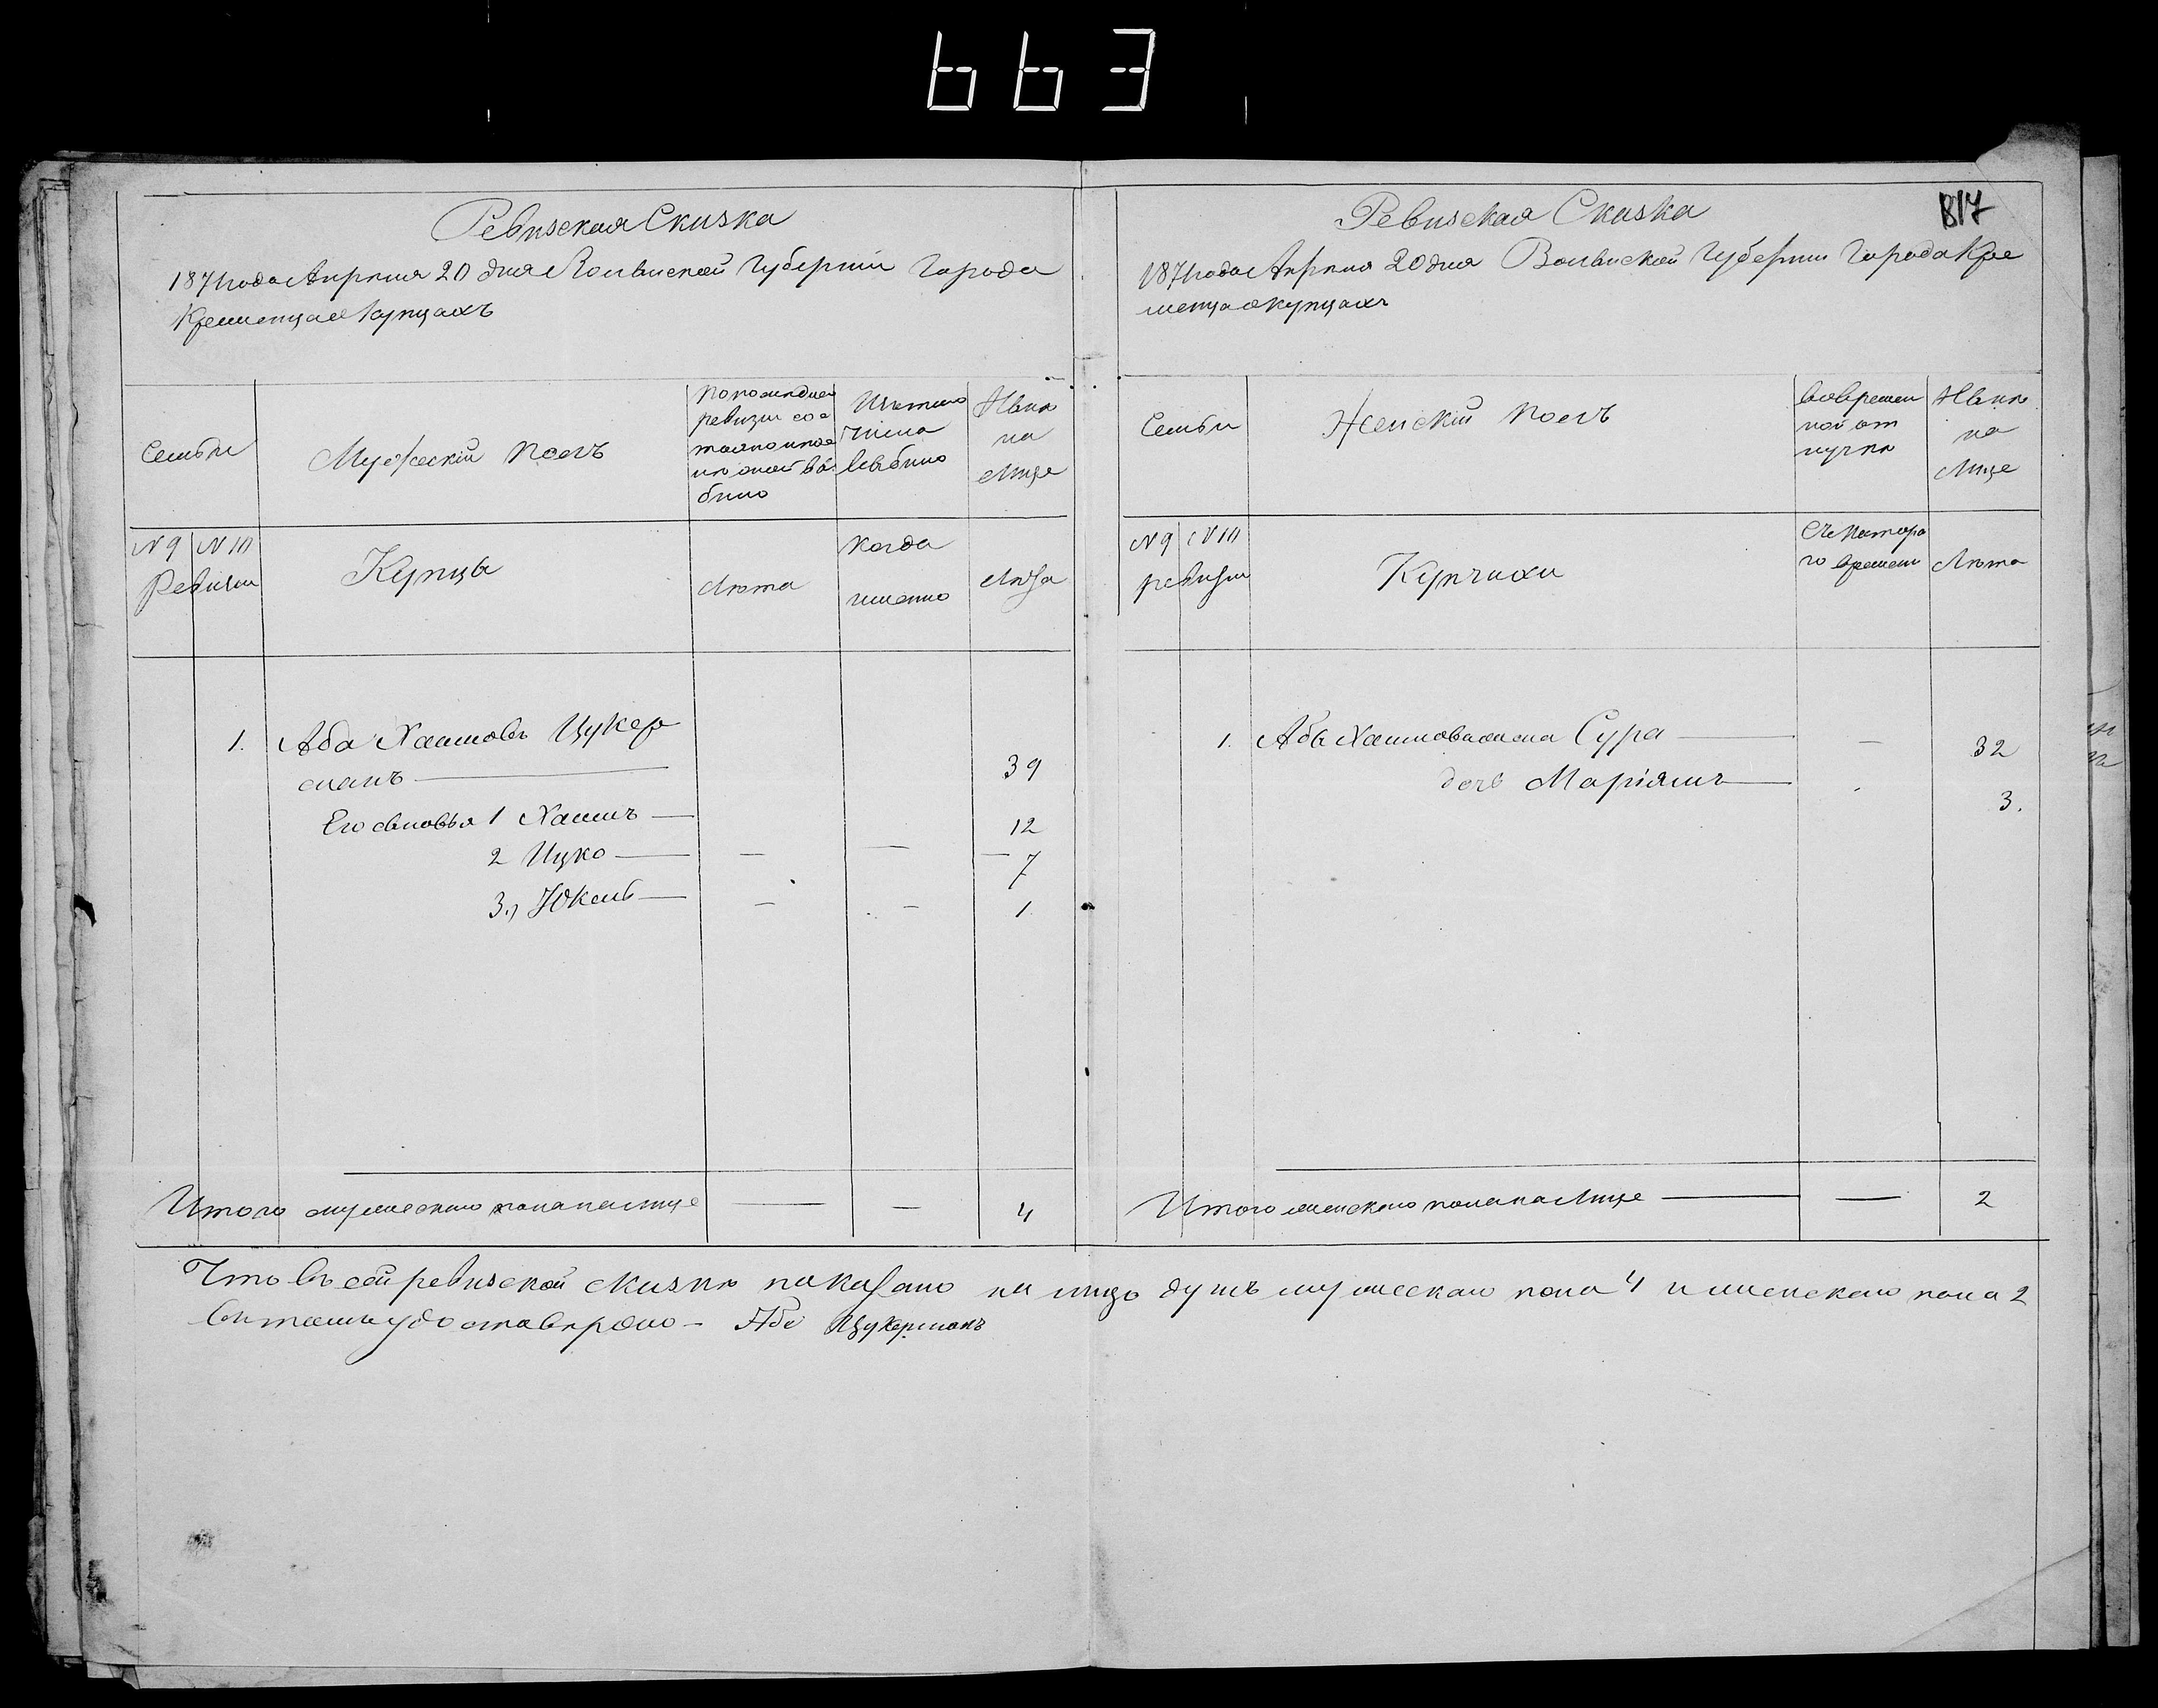 663
Ревизская Сказка
1871 года Апрѣля 20 дня Волынской Губерніи Города
Кременца о Купцахъ
Семьи
Мужескій полъ
По последней
ревизіи сос
тояло и пос
лѣ оной вы
было
Изъ того
числа
выбыло
Нынѣ
на
Лице
№ 9 № 10
Ревизіи
Купцы
Лѣта
Когда
именно
Лѣта
1. Аба Хаимовъ Цукер
манъ 39
Его сыновья 1 Хаимъ 12
2 Ицко — — — 7
3., Юкель — — 1
Итого мужеского пола на лице — — 4
Ревизская Сказка
817
1871 года Апрѣля 20 дня Волынской Губерніи Города Кре
менца о купцахъ
Семьи
Женскій полъ
Во времен
ной от
лучкѣ
Нынѣ
на
Лице
№ 9 № 10
ревизіи
Купчихи
Съ котора
го времени
Лѣта
1. Абы Хаимова жена Сура — 32
дочь Маріямъ 3.
Итого женского пола на Лице — 2
Что въ сей ревизской сказкѣ показано на лицо душъ мужескаго пола 4 и женскаго пола 2
въ томъ удостовѣряю – Аба Цукерманъ